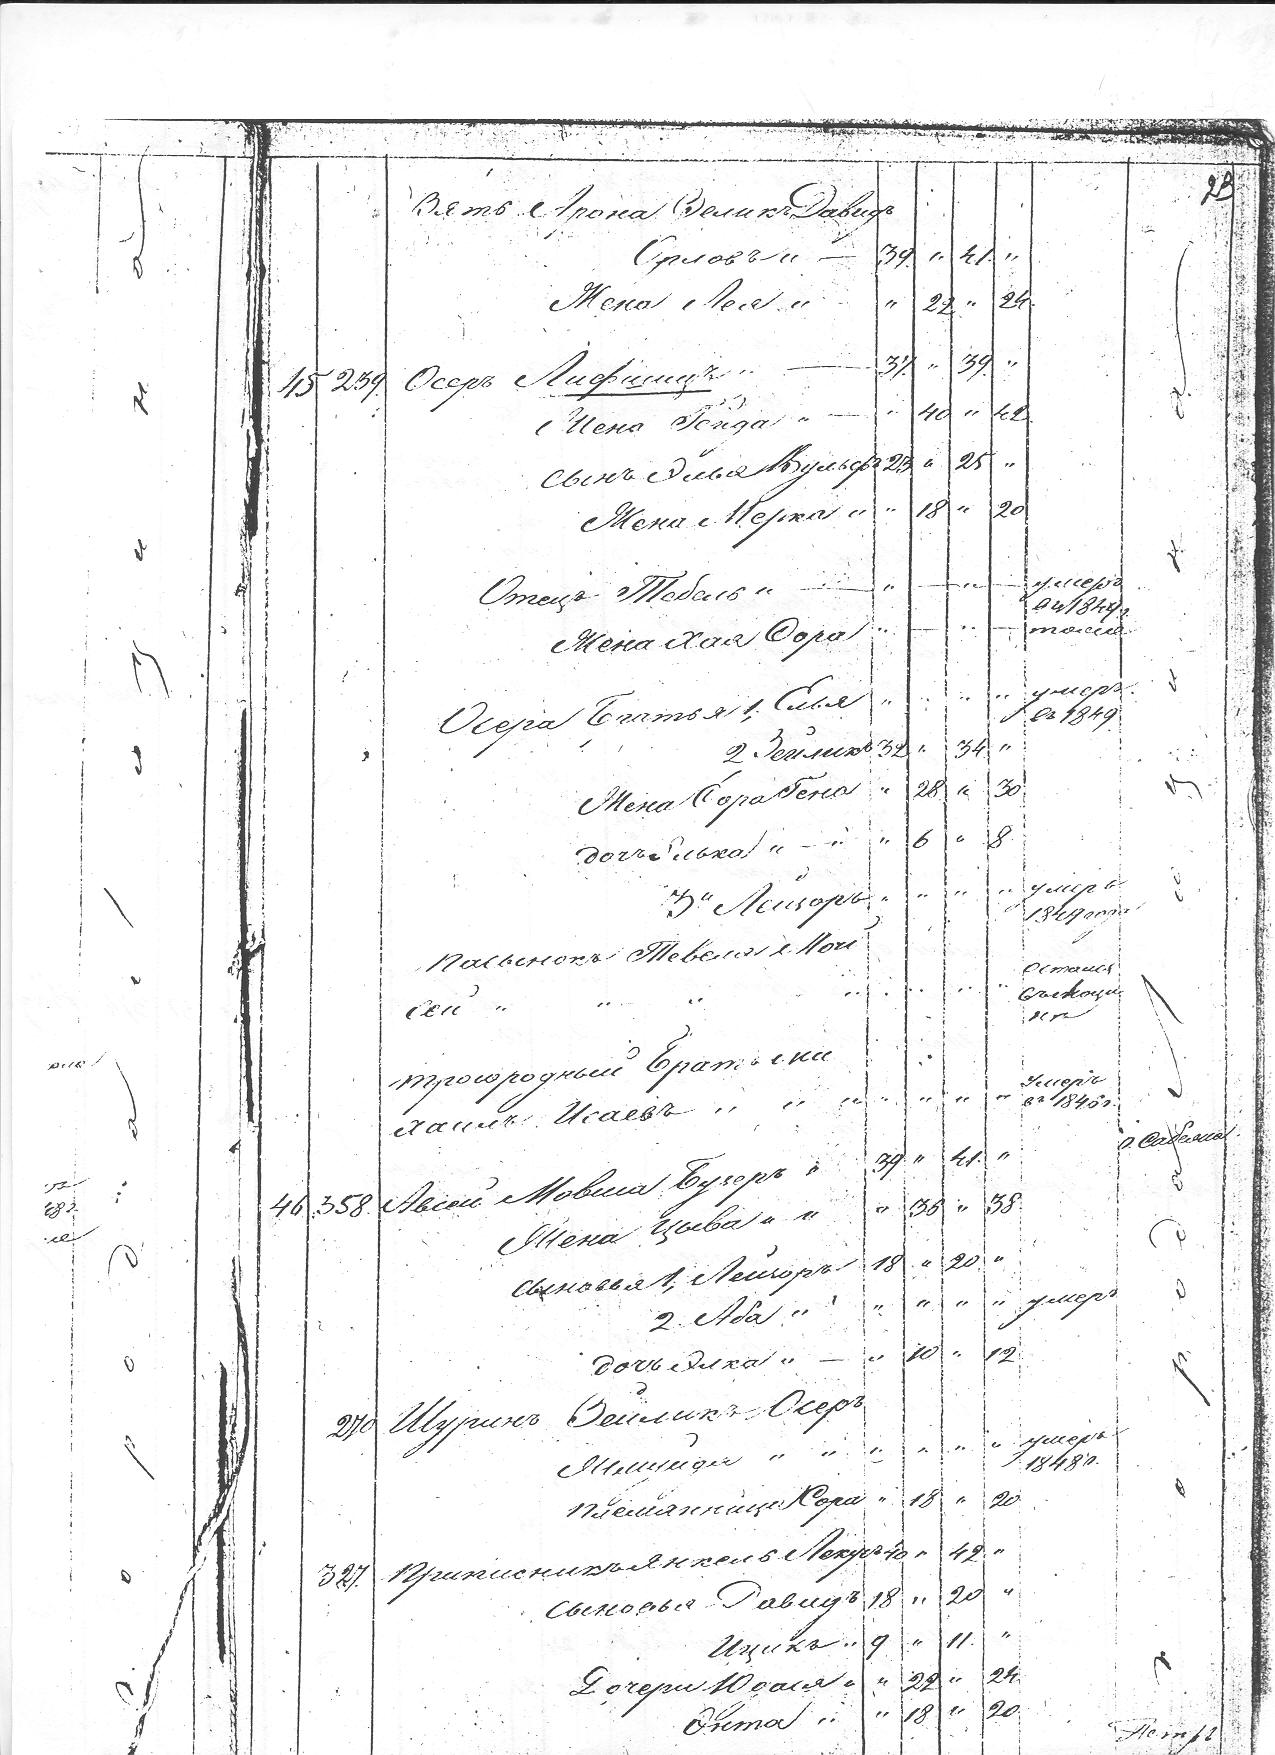 23
Зять Арона Зеликъ Давидъ
Орловъ " — 39. " 41. "
Жена Лея " " 22 " 24
45 239. Осеръ Лифшицъ " — 37. " 39. "
Жена Гейда " — " 40 " 42
сынъ Элья Вульфъ 23 " 25 "
Жена Мерка " " 18 " 20
Отецъ Тебель " — " — " — умеръ
въ 1849г.
Жена Хая Сора " — " — тоже
Осера Братья 1, Елья " " " " умеръ
въ 1849
2 Зейликъ 32 " 34 "
Жена Сора Гена " 28 " 30
дочь Элька " — " " 6 " 8
3й Лейзоръ " " " " умеръ
1849 года
пасынокъ Тевеля Мои
сей " " " " " " " остался
троюродный Братъ
Хаимъ Исаевъ " " " " " " " умеръ
въ 1845г.
46 358. Авсей Мовша Бухеръ " 39 " 41. "
Жена Цыва " " " 36 " 38
сыновья 1, Лейзоръ 18 " 20 "
2 Аба " " " " " умеръ
дочь Элка " — " 10 " 12
270 Шуринъ Зейликъ Осеръ
" " " " " " умеръ
1848г.
племянница Сора " 18 " 20
327. Приписникъ Янкель 40 " 42 "
сыновья Давидъ 18 " 20 "
Ицикъ " 9 " 11. "
Дочери " " 22 " 24
Энта " " 18 " 20